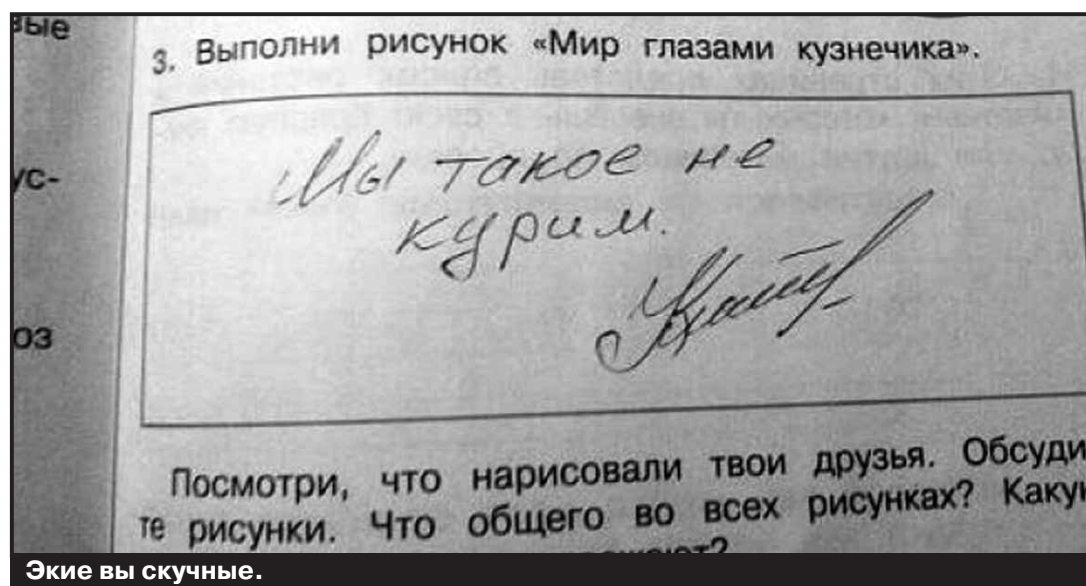 вые
3. Выполни рисунок «Мир глазами кузнечика».
ус-
Мы такое не
курим.
оз
Посмотри, что нарисовали твои друзья. Обсуди
те рисунки. Что общего во всех рисунках? Каку
Экие вы скучные.